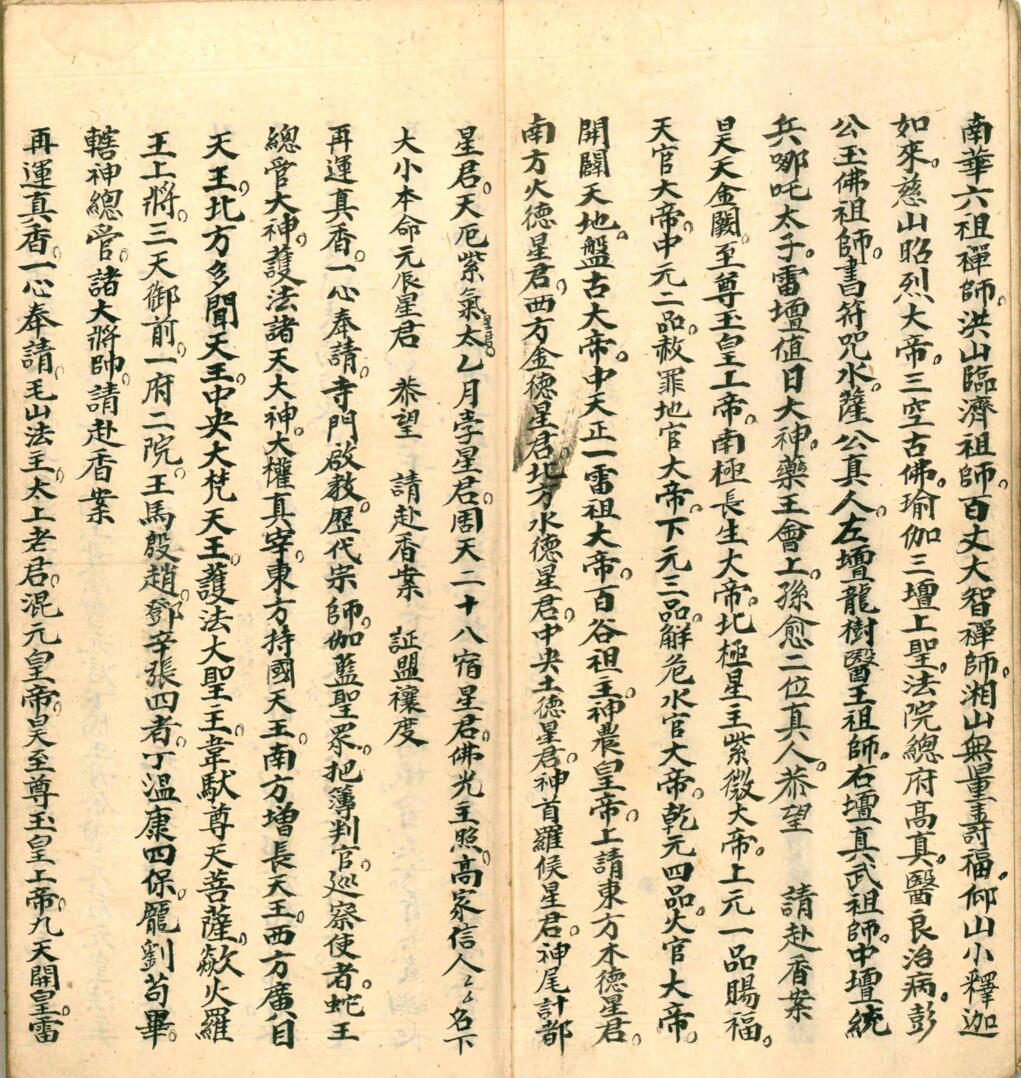 南華六祖禪師。洪山臨濟祖師。百丈大智禪師。湘山無量壽福。仰山小釋迦
如來。慈山昭烈大帝。三空古佛。瑜伽三壇上聖。法院總府高真。醫良治病。彭
公玉佛祖師。書符咒水。薩公真人。左壇龍樹醫王祖師。右壇真武祖師。中壇統
兵哪吒太子。雷壇值日大神。藥王會上。孫愈二位真人。恭望 請赴香案
昊天金闕。至尊玉皇上帝。南極長生大帝。北極星主紫微大帝。上元一品賜福。
天官大帝。中元二品。赦罪地官大帝。下元三品。解危水官大帝。乾元四品。火官大帝。
開闢天地。盤古大帝。中天正一雷祖大帝。百谷祖主。神農皇帝。上請東方木德星君。
南方火德星君。西方金德星君。北方水德星君。中央土德星君。神首羅候星君。神尾計都
星君。天厄紫氣星君。太乙月孛星君。周天二十八宿星君。佛光主照。高家信人〻名下
大小本命元辰星君 恭望 請赴香案 証盟禳度
再運真香。一心奉請。寺門啟教。歷代宗師。伽藍聖眾。把簿判官。巡察使者。蛇王
總管大神。護法諸天大神。大權真宰。東方持國天王。南方增長天王。西方廣目
天王。北方多聞天王。中央大梵天王。護法大聖王。韋馱尊天菩薩。歘火羅
王上將。三天御前。一府二院。王馬殷趙。鄧辛張四者。丁溫康四保。龐劉苟畢。
轄神總管。諸大將帥。請赴香案
再運真香。一心奉請。毛山法主。太上老君。混元皇帝。昊至尊玉皇上帝。九天開皇。雷